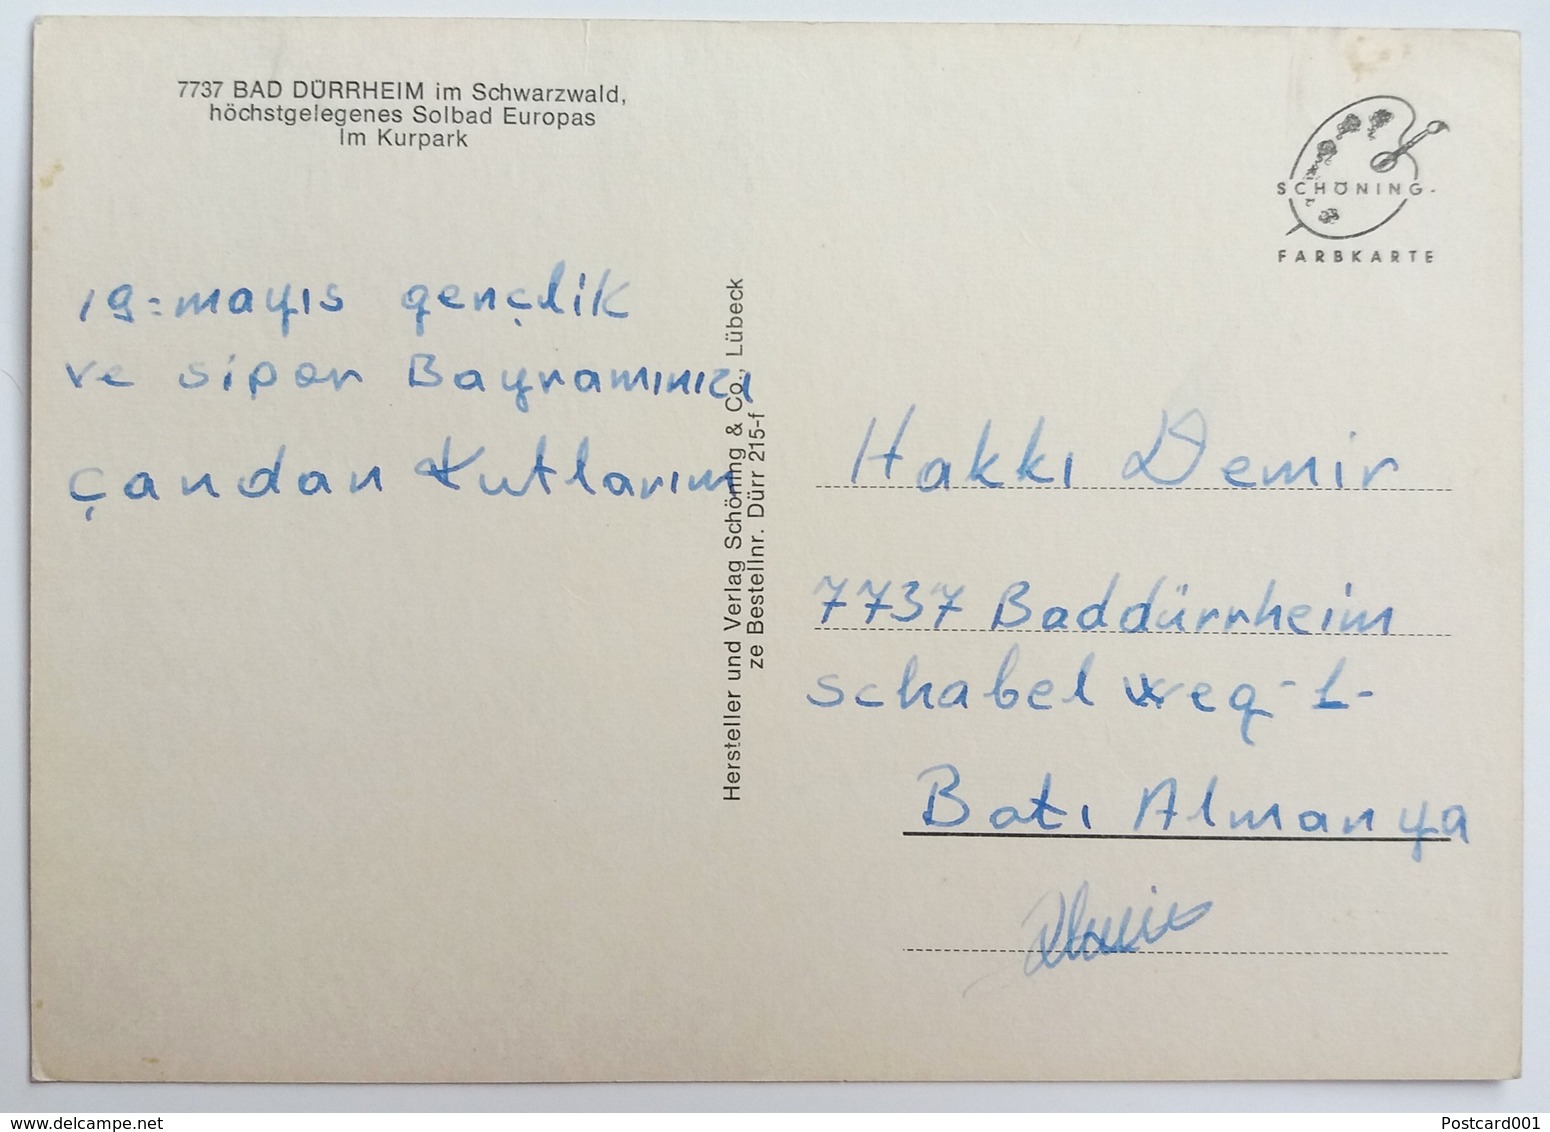 7737 BAD DÜRRHEIM im Schwarzwald,
höchstgelegenes Solbad Europas
Im Kurpark
SCHÖNING-
FARBKARTE
19=mayıs gençlik
ve sipor Bayramınızı
çandan Kutlarım
Hersteller und Verlag Schöning & Co., Lübeck
ze Bestellnr. Dürr 215-f
Hakkı Demir
7737 Baddürrheim
schabel weg-1-
Batı Almanya
Postcard001